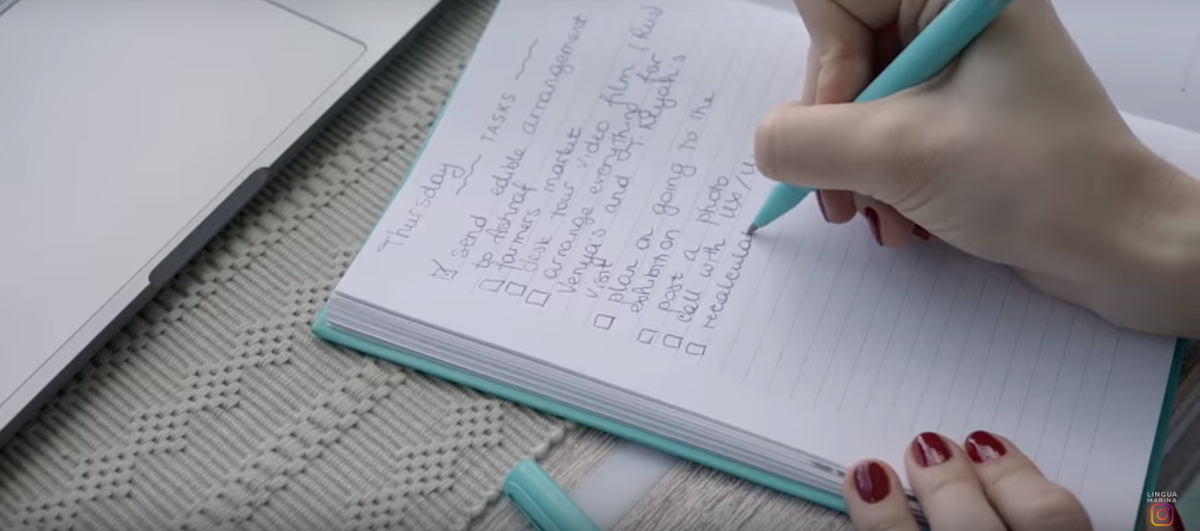 Thursday
~ TASKS ~
☑ send edible arrangement
to Ashraf
☐ farmers market
☐ desk tour video film (Rus)
☐ arrange everything for
Venya's and T. Neyah's
visit
☐ plan a
exhibition going to the
☐ post a photo
☐ call with Ux/U
☐ recalculat
LINGUA
MARINA